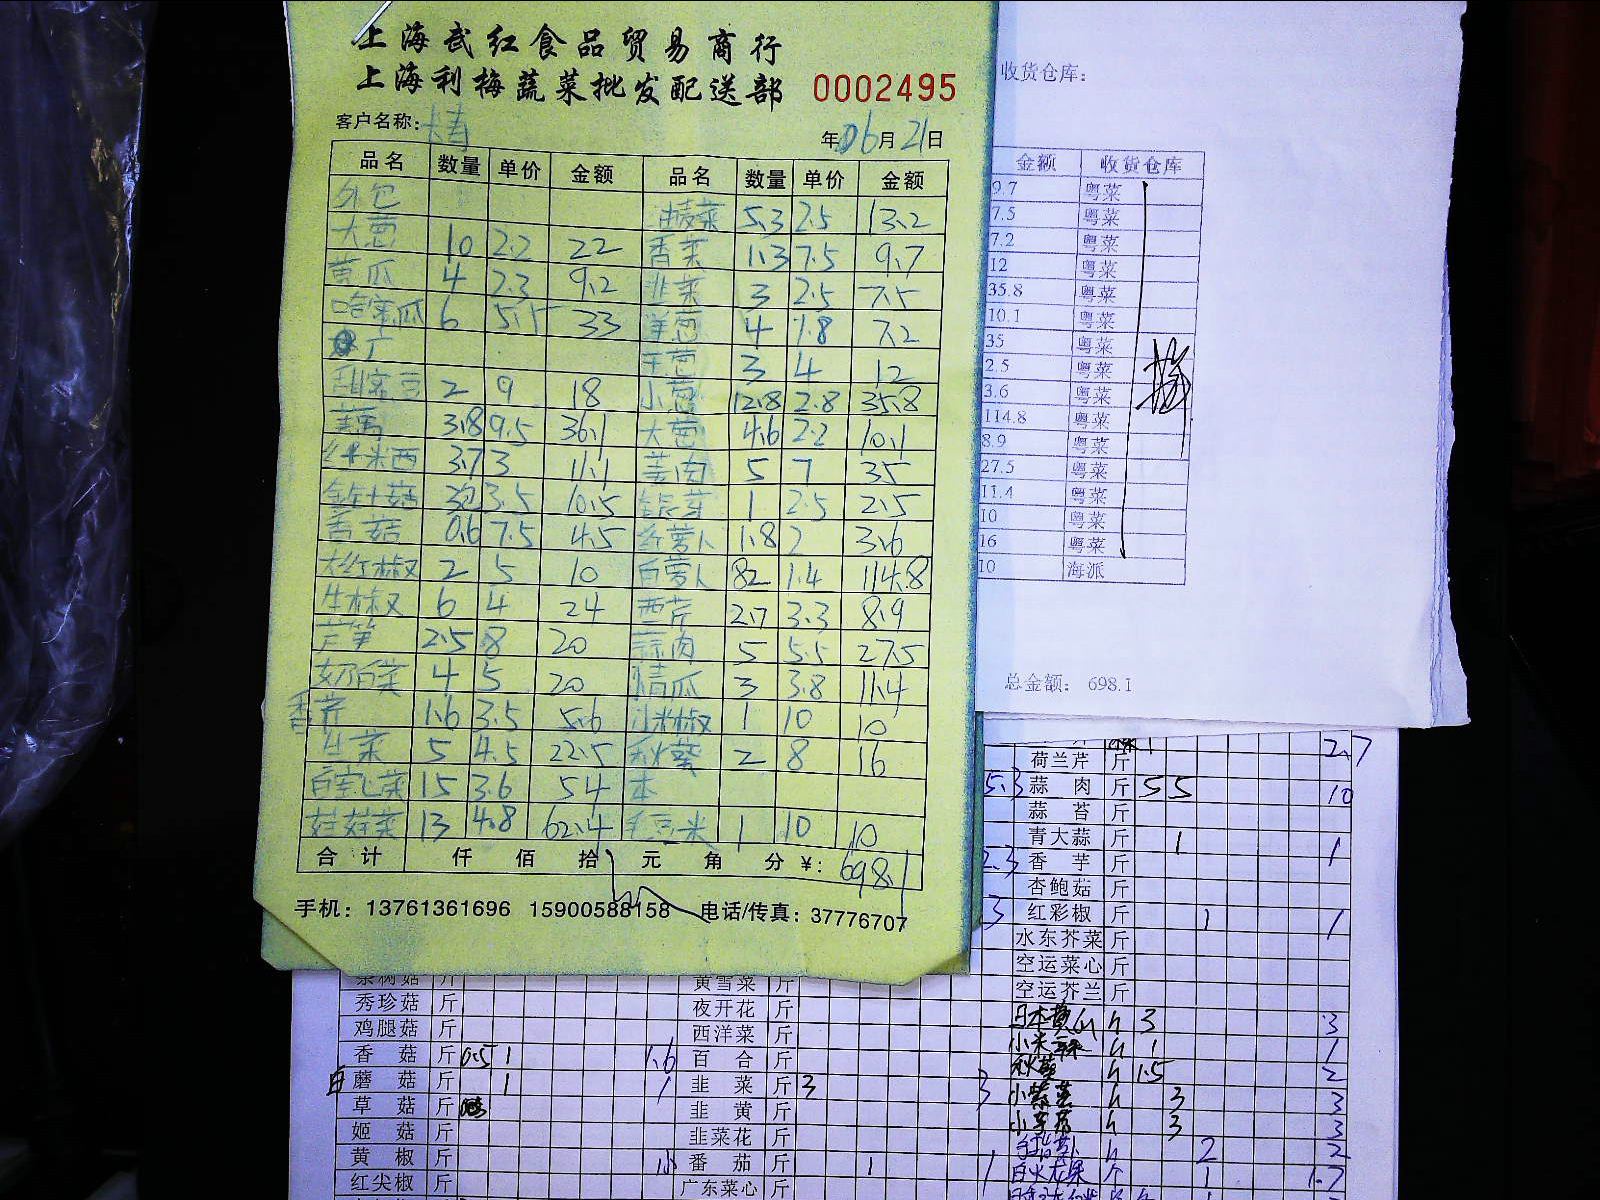 上海武红食品贸易商行
上海利梅蔬菜批发配送部 0002495
客户名称:
年06月21日
品名 数量 单价 金额 品名 数量 单价 金额
外包 油麦菜 5.3 2.5 13.2
大葱 10 2.2 22 香菜 1.3 7.5 9.7
黄瓜 4 2.3 9.2 韭菜 3 2.5 7.5
哈密瓜 6 5.5 33 洋葱 4 1.8 7.2
广 干葱 3 4 12
甜密豆 2 9 18 小葱 12.8 2.8 35.8
3.8 9.5 36.1 大葱 4.6 2.2 10.1
3.7 3 11.1 姜肉 5 7 35
金针菇 3包 3.5 10.5 银芽 1 2.5 2.5
香菇 0.6 7.5 4.5 红萝卜 1.8 2 3.6
大红椒 2 5 10 白萝卜 82 1.4 114.8
牛椒 6 4 24 西芹 2.7 3.3 8.9
芦笋 2.5 8 20 蒜肉 5 5.5 27.5
奶白菜 4 5 20 精瓜 3 3.8 11.4
香芹 1.6 3.5 5.6 小米椒 1 10 10
生菜 5 4.5 22.5 秋葵 2 8 16
15 3.6 54 本
娃娃菜 13 4.8 62.4 毛豆米 1 10 10
合计 仟 佰 拾 元 角 分 ¥: 698.1
手机：13761361696 15900588158 电话/传真：37776707
收货仓库：
金额 收货仓库
9.7 粤菜
7.5 粤菜
7.2 粤菜
12 粤菜
35.8 粤菜
10.1 粤菜
35 粤菜
2.5 粤菜
3.6 粤菜
114.8 粤菜
8.9 粤菜
27.5 粤菜
11.4 粤菜
10 粤菜
16 粤菜
10 海派
总金额： 698.1
荷兰芹 斤 1 2.7
5.3 蒜肉 斤 5 5 10
蒜苔 斤
青大蒜 斤 1 1
2.3 香芋 斤
杏鲍菇 斤
3 红彩椒 斤 1 1
水东芥菜 斤
空运菜心 斤
空运芥兰 斤
茶树菇 斤 黄雪菜 斤
秀珍菇 斤 夜开花 斤
鸡腿菇 斤 西洋菜 斤
香菇 斤 0.5 1 1.6 百合 斤
白蘑菇 斤 1 1 韭菜 斤 3 3
草菇 斤 韭黄 斤
姬菇 斤 韭菜花 斤
黄椒 斤 番茄 斤 1 1
红尖椒 斤 广东菜心 斤
日本黄瓜 3 3
小米辣 1 1
秋葵 1.5 2
3 3
小芋艿 3 3
2 2
白火龙果 个 1 1.7